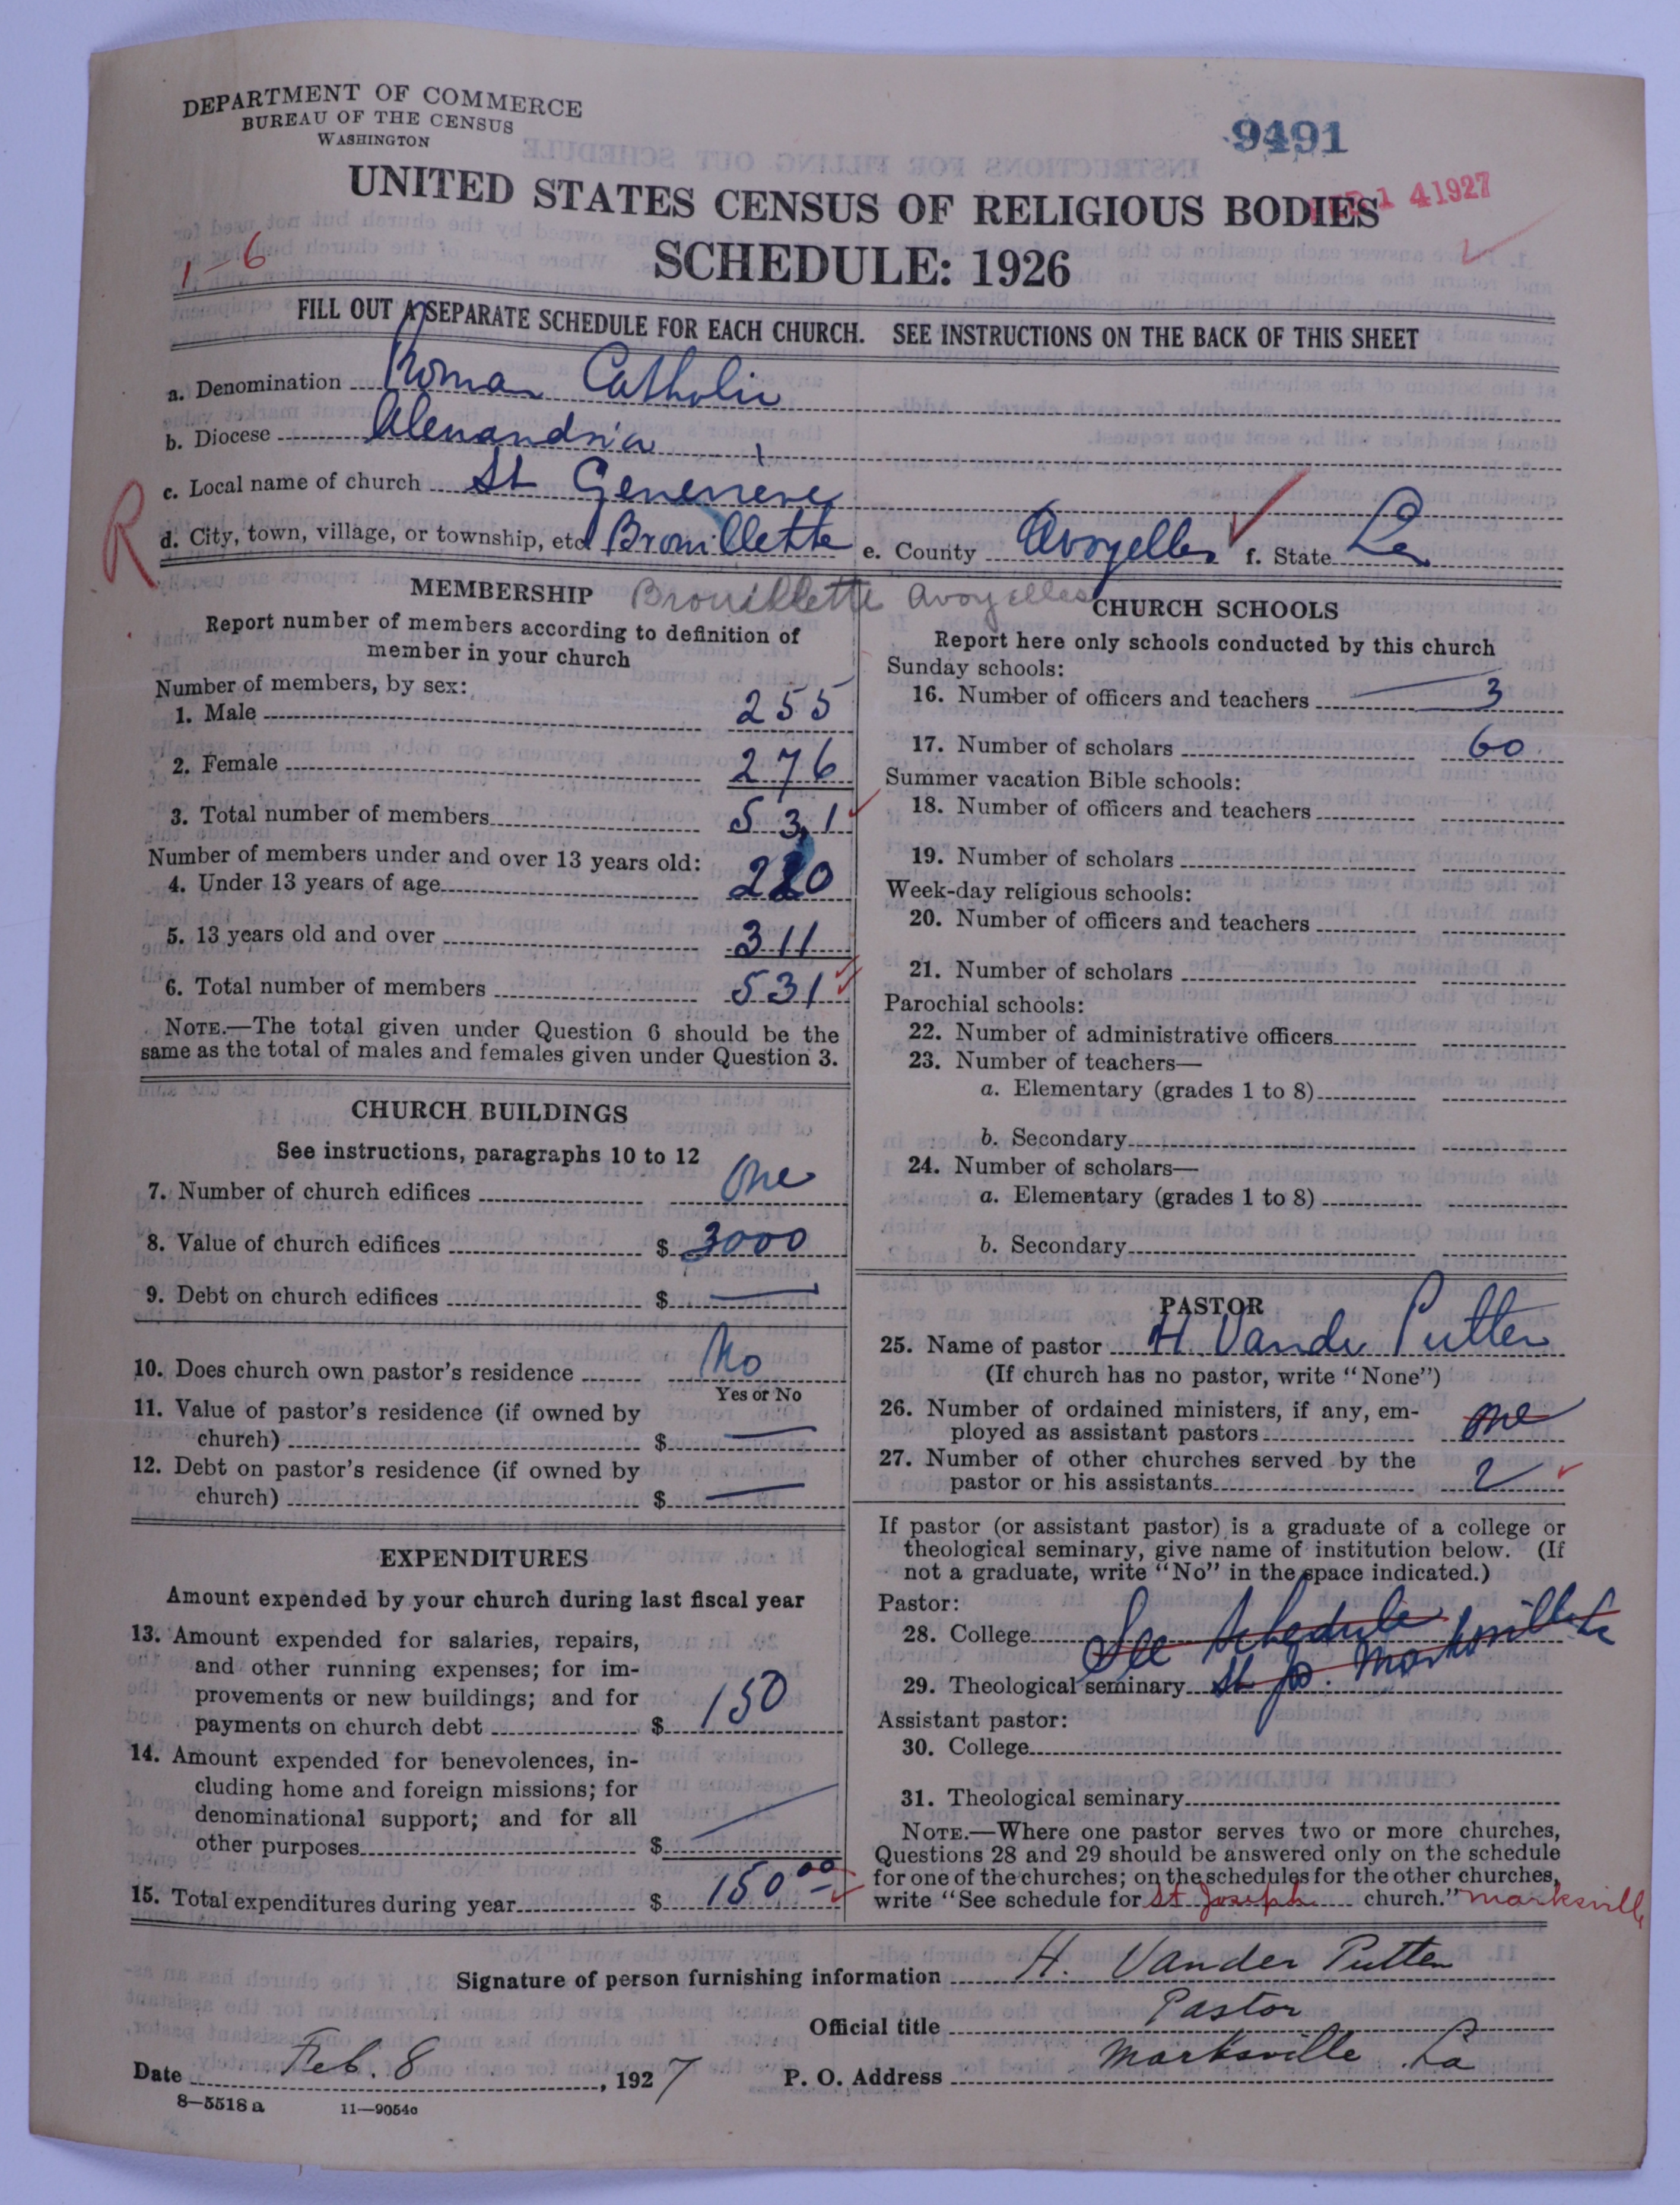 DEPARTMENT OF COMMERCE
BUREAU OF THE CENSUS
WASHINGTON
9491
1 41927
UNITED STATES CENSUS OF RELIGIOUS BODIES
SCHEDULE: 1926
1-6
FILL OUT A SEPARATE SCHEDULE FOR EACH CHURCH. SEE INSTRUCTIONS ON THE BACK OF THIS SHEET
a. Denomination Roman Catholic
b. Diocese Alexandria
c. Local name of church St Genevieve
R
d. City, town, village, or township, etc. Brouillette e. County Avoyelles f. State La
Brouillette Avoyelles
MEMBERSHIP
Report number of members according to definition of
member in your church
Number of members, by sex:
1. Male 255
2. Female 276
3. Total number of members 531
Number of members under and over 13 years old:
4. Under 13 years of age 220
5. 13 years old and over 311
6. Total number of members 531
NOTE.—The total given under Question 6 should be the
same as the total of males and females given under Question 3.
CHURCH BUILDINGS
See instructions, paragraphs 10 to 12
7. Number of church edifices One
8. Value of church edifices $ 3000
9. Debt on church edifices $ —
10. Does church own pastor's residence No
Yes or No
11. Value of pastor's residence (if owned by
church) $ —
12. Debt on pastor's residence (if owned by
church) $ —
EXPENDITURES
Amount expended by your church during last fiscal year
13. Amount expended for salaries, repairs,
and other running expenses; for im-
provements or new buildings; and for
payments on church debt $ 150
14. Amount expended for benevolences, in-
cluding home and foreign missions; for
denominational support; and for all
other purposes $ —
15. Total expenditures during year $ 150 00
CHURCH SCHOOLS
Report here only schools conducted by this church
Sunday schools:
16. Number of officers and teachers 3
17. Number of scholars 60
Summer vacation Bible schools:
18. Number of officers and teachers
19. Number of scholars
Week-day religious schools:
20. Number of officers and teachers
21. Number of scholars
Parochial schools:
22. Number of administrative officers
23. Number of teachers—
a. Elementary (grades 1 to 8)
b. Secondary
24. Number of scholars—
a. Elementary (grades 1 to 8)
b. Secondary
PASTOR
25. Name of pastor H Vander Putten
(If church has no pastor, write "None")
26. Number of ordained ministers, if any, em-
ployed as assistant pastors one
27. Number of other churches served by the
pastor or his assistants 2
If pastor (or assistant pastor) is a graduate of a college or
theological seminary, give name of institution below. (If
not a graduate, write "No" in the space indicated.)
Pastor:
28. College See Schedule
29. Theological seminary St Jo. Marksville La
Assistant pastor:
30. College
31. Theological seminary
NOTE.—Where one pastor serves two or more churches,
Questions 28 and 29 should be answered only on the schedule
for one of the churches; on the schedules for the other churches,
write "See schedule for St Joseph church." Marksville
Signature of person furnishing information H. Vander Putten
Official title Pastor
Date Feb. 8, 1927 P. O. Address Marksville La
8—5518 a 11—9054c